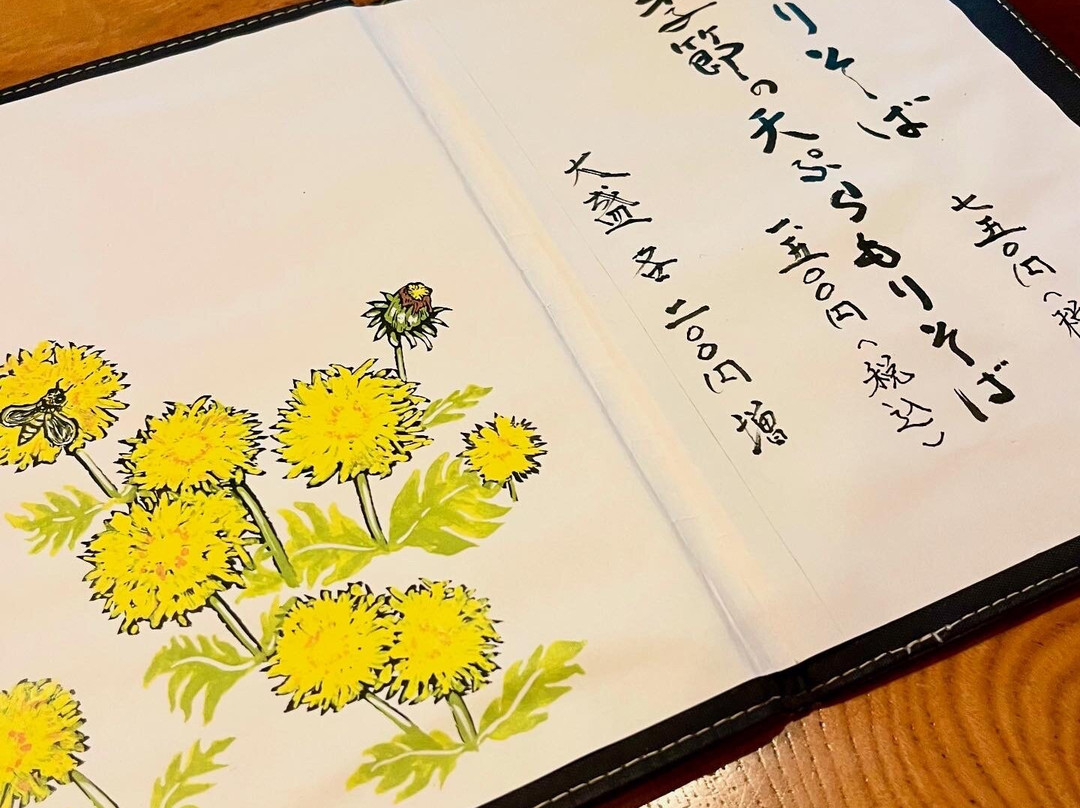 りそば
七五〇円(税
季節の天ぷらもりそば
一、五〇〇円(税込)
大盛各二〇〇円増